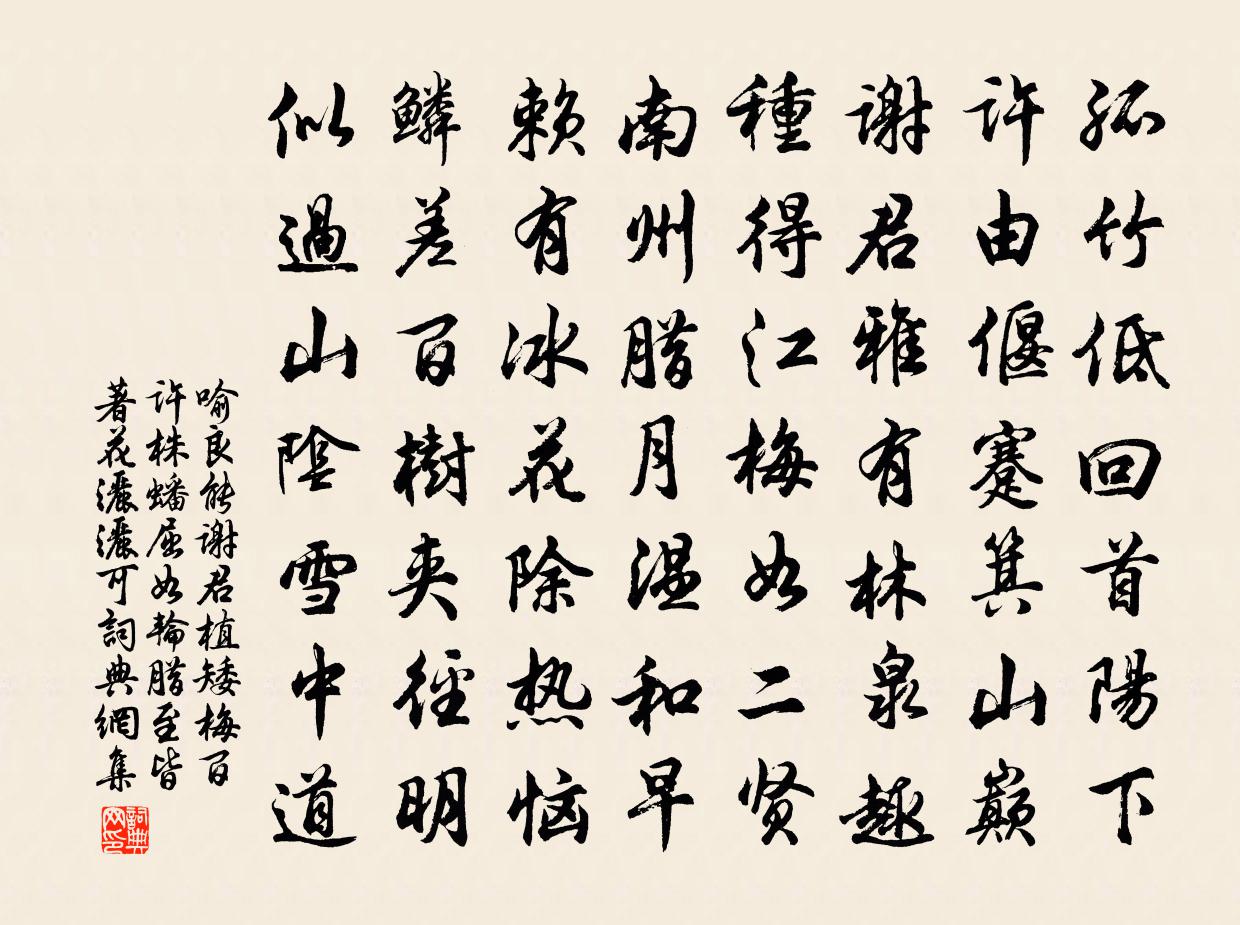 孤竹低回首陽下
許由偃蹇箕山巔
謝君雅有林泉趣
種得江梅如二贤
南州腊月温和早
赖有冰花除热恼
鳞差百樹夹徑明
似過山陰雪中道
喻良能谢君植矮梅百
許株蟠屈如輪腊至皆
著花灑灑可詞典網集
詞典网印